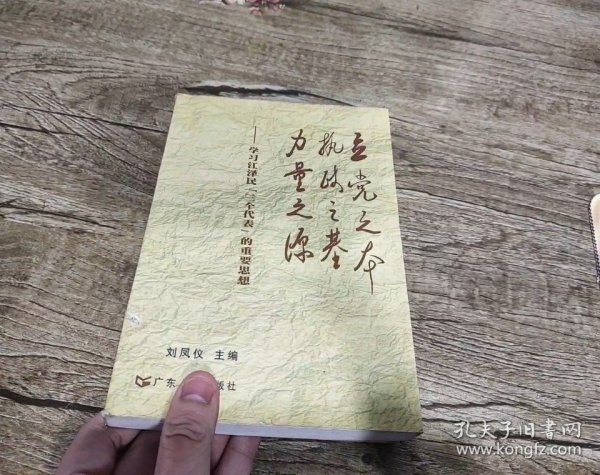 立党之本
执政之基
力量之源
——学习江泽民“三个代表”的重要思想
刘凤仪 主编
广东
版社
孔夫子旧书网
www.kongfz.com